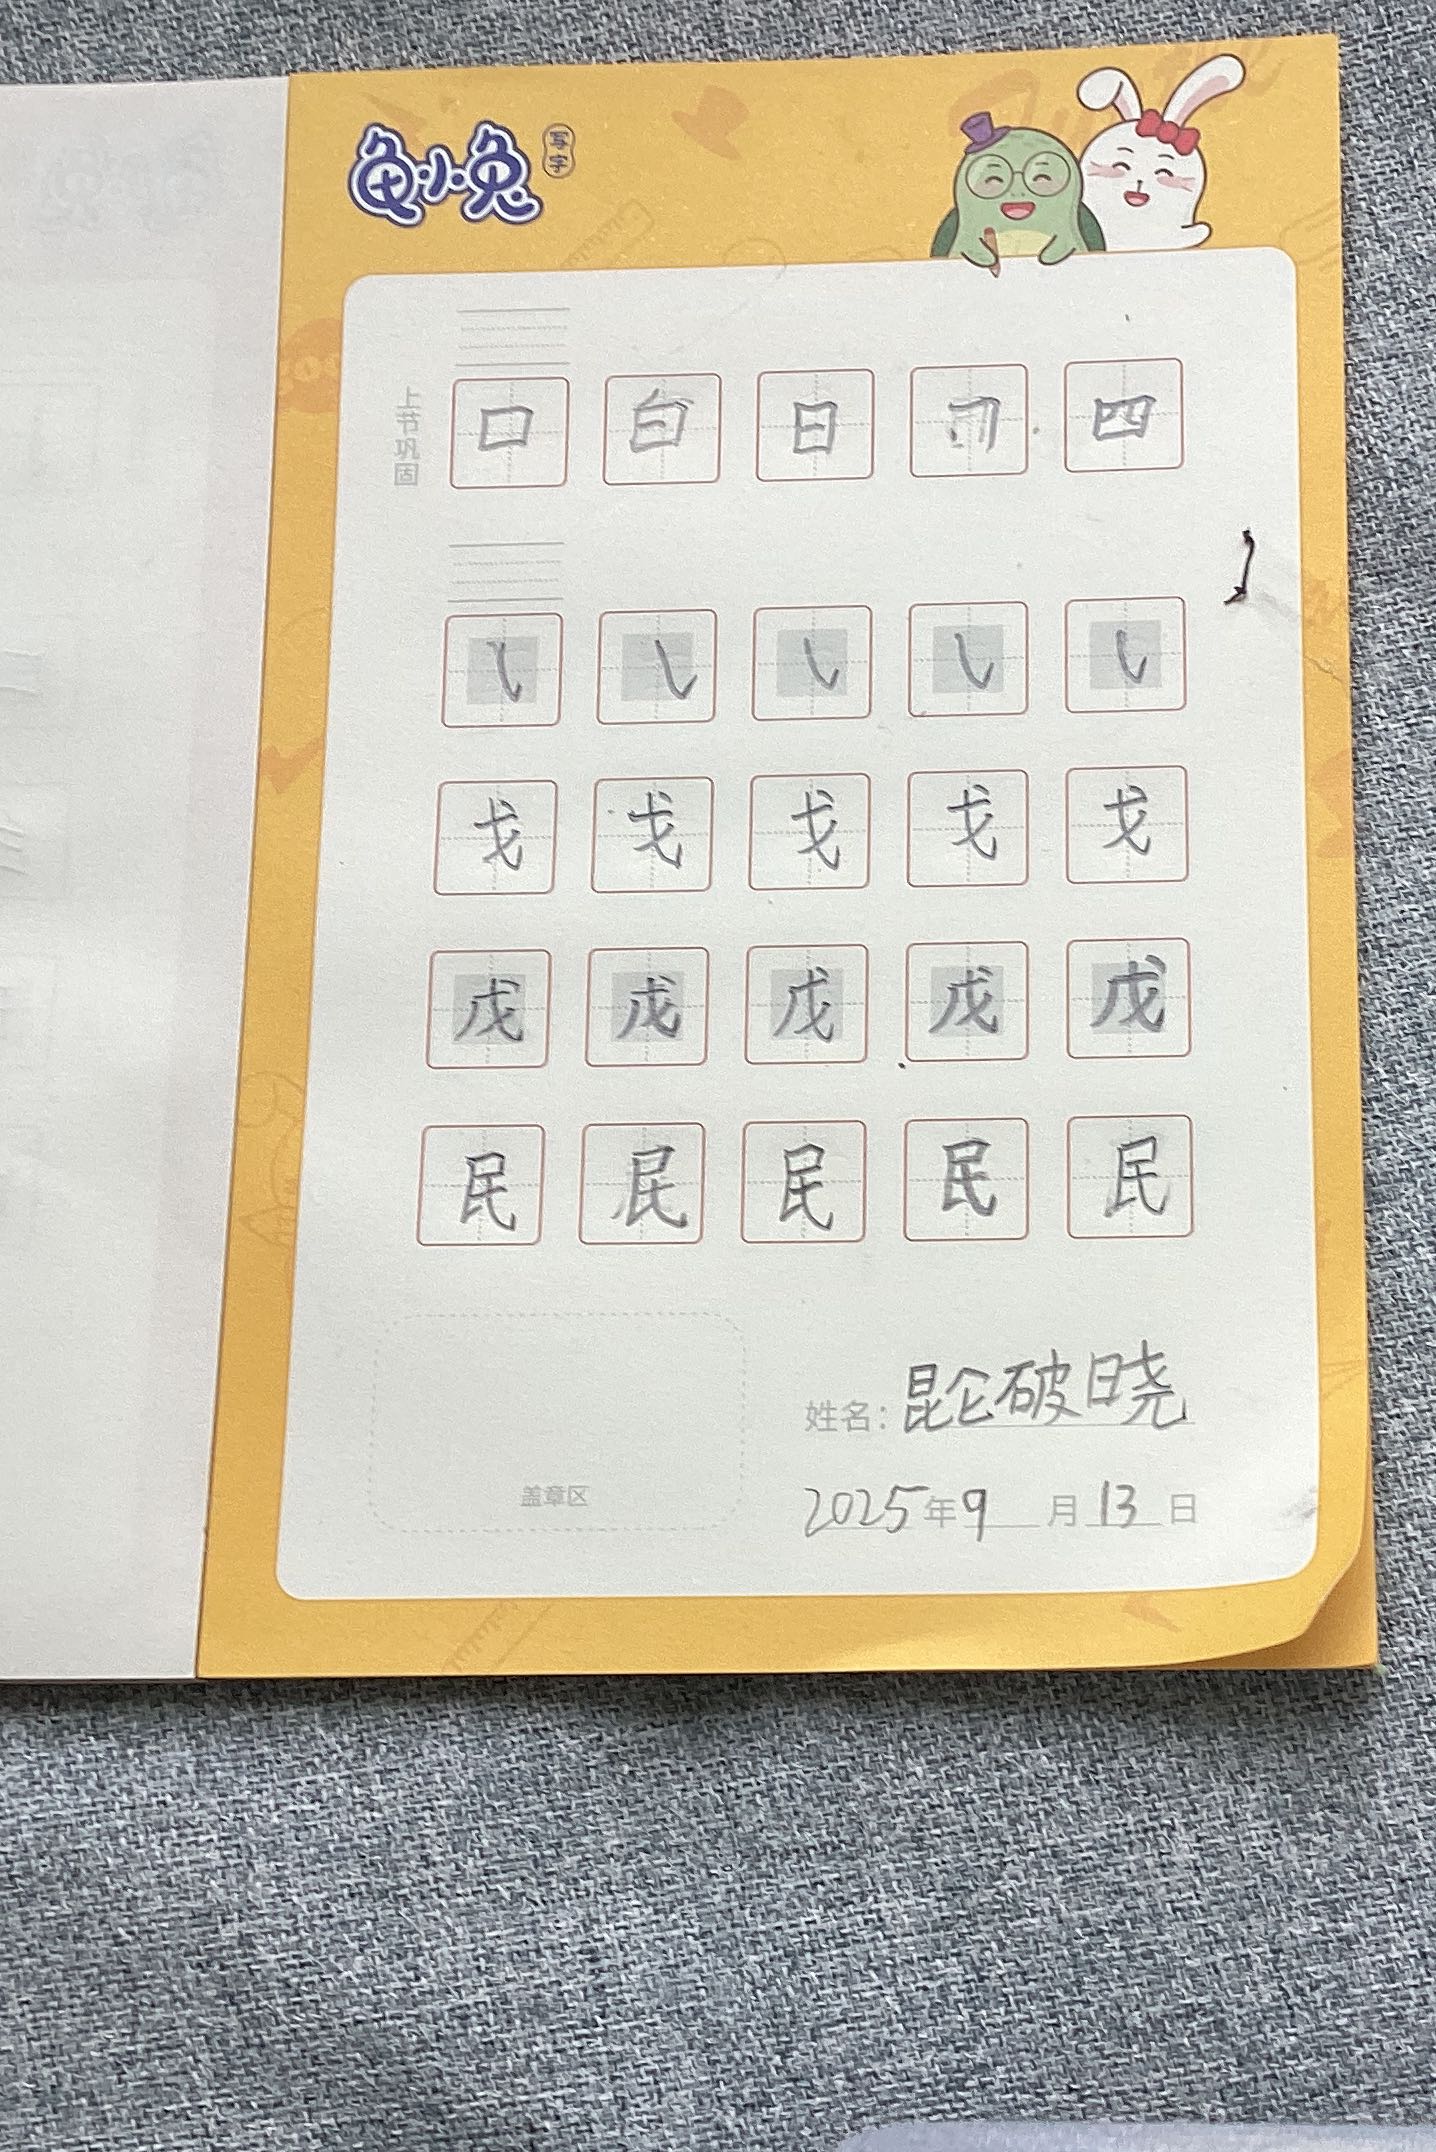 龟小兔 写字
上节巩固
口 白 日 四
㇂ ㇂ ㇂ ㇂ ㇂
戈 戈 戈 戈 戈
戊 戊 戊 戊 戊
民 民 民 民 民
姓名：昆仑破日尧
盖章区
2025年9月13日